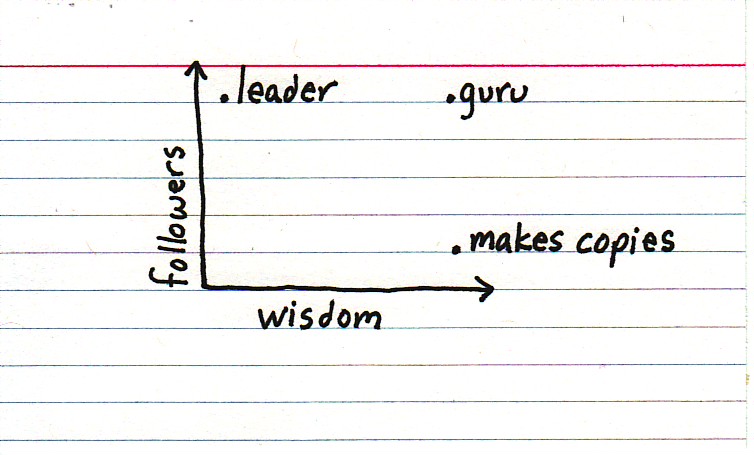 .leader
.guru
followers
.makes copies
wisdom